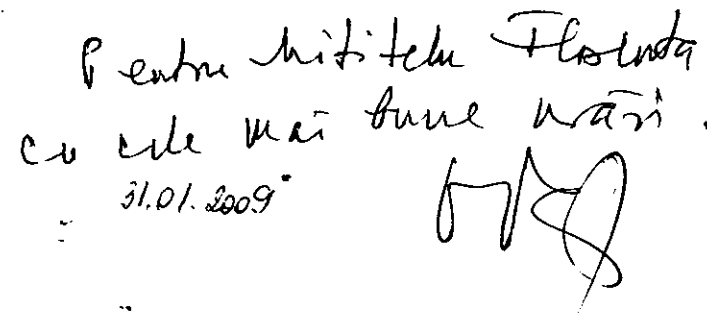 Pentru Mititelu Florenta
cu cele mai bune urări.
31.01.2009